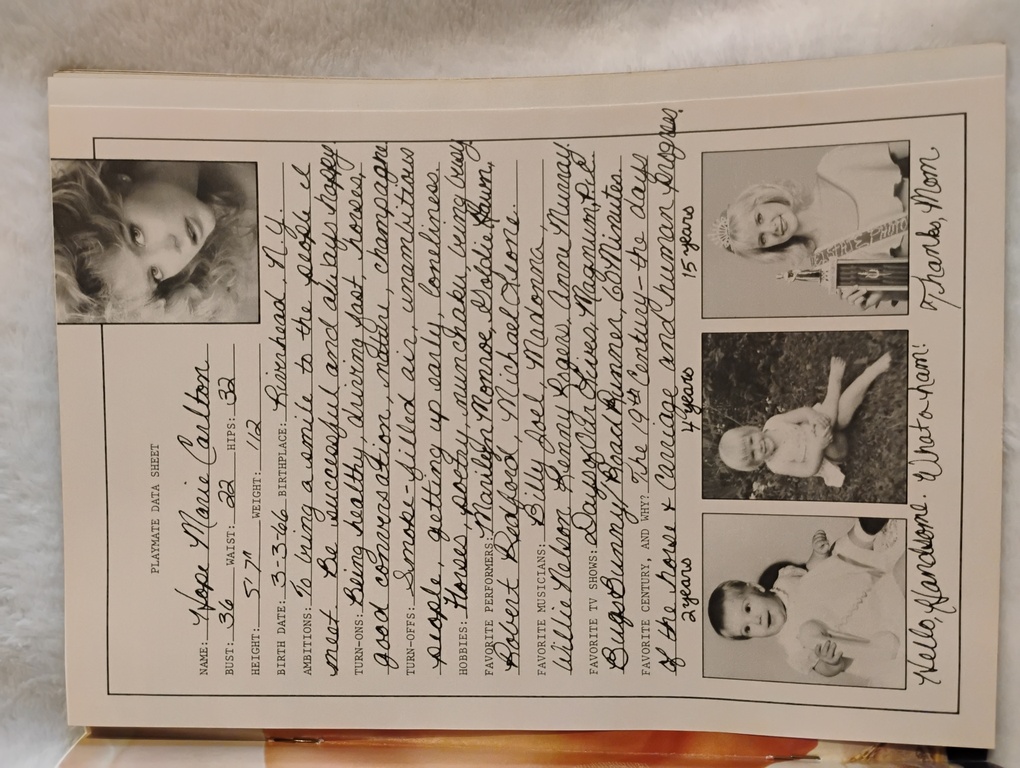 PLAYMATE DATA SHEET
NAME: Hope Marie Carlton
BUST: 36 WAIST: 22 HIPS: 32
HEIGHT: 5'7" WEIGHT: 112
BIRTH DATE: 3-3-66 BIRTHPLACE: Riverhead, N.Y.
AMBITIONS: To bring a smile to the people I
meet. Be successful and always happy
TURN-ONS: Being healthy, driving fast, horses,
good conversation, nature, champagne
TURN-OFFS: Smoke-filled air, unambitious
people, getting up early, loneliness
HOBBIES: Horses, poetry, nunchaku, being busy
FAVORITE PERFORMERS: Marilyn Monroe, Goldie Hawn,
Robert Redford, Michael Leone.
FAVORITE MUSICIANS: Billy Joel, Madonna,
Willie Nelson, Kenny Rogers, Anne Murray
FAVORITE TV SHOWS: Days Of Or Lives, Magnum, P.I.
Bugs Bunny/Road Runner, 60 Minutes
FAVORITE CENTURY, AND WHY? The 19th Century—the days
of the horse & carriage and human kindness.
2 years 4 years 15 years
Hello, Handsome. What a ham! Thanks, Mom